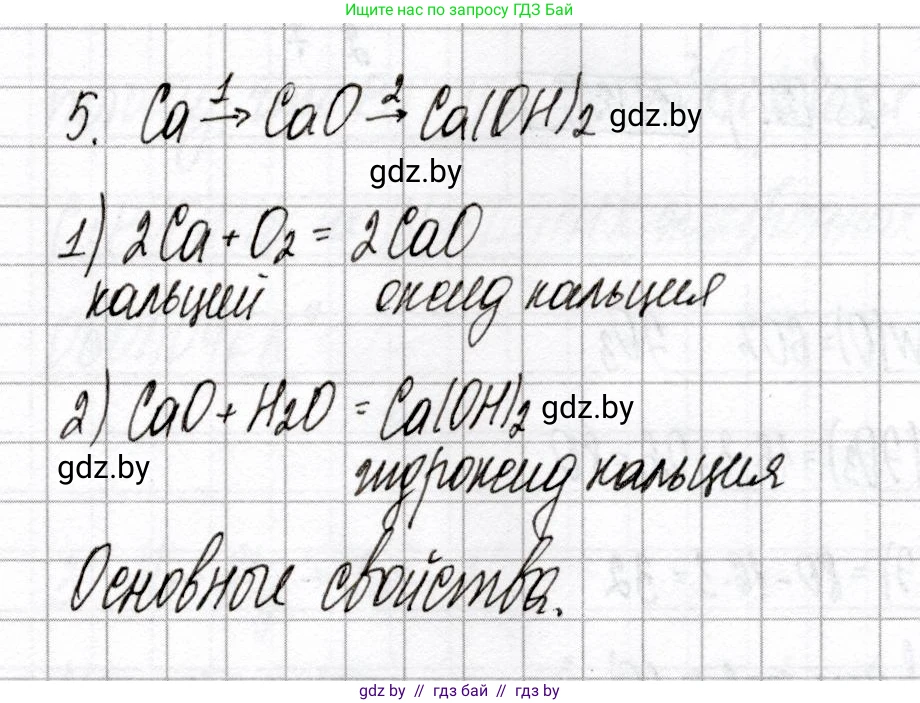 Ищите нас по запросу ГДЗ Бай
5. Ca 1→ CaO 2→ Ca(OH)2 gdz.by
gdz.by
1) 2Ca + O2 = 2CaO
кальций оксид кальция
2) CaO + H2O = Ca(OH)2 gdz.by
gdz.by гидроксид кальция
Основные свойства.
gdz.by // гдз бай // гдз by